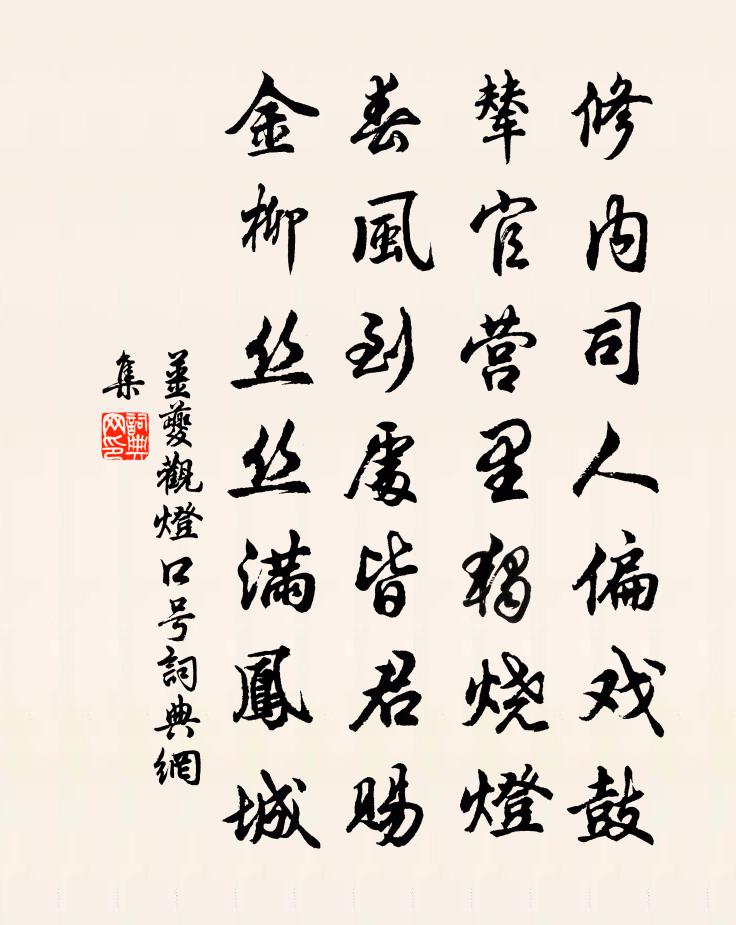 修内司人偏戏鼓
辇官营里独烧燈
春風到處皆君賜
金柳丝丝滿鳳城
姜夔觀燈口号詞典網
集
詞典網印